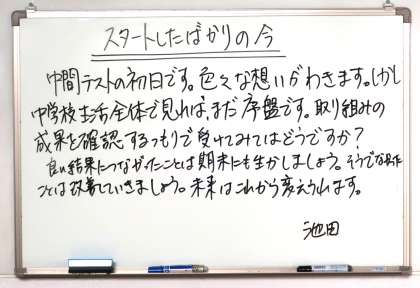 スタートしたばかりの今
中間テストの初日です。色々な想いがわきます。しかし
中学校生活全体で見れば、まだ序盤です。取り組みの
成果を確認するつもりで受けてみてはどうですか?
良い結果につながったことは期末にも生かしましょう。そうでなかった
ことは改善していきましょう。未来はこれから変えられます。
池田